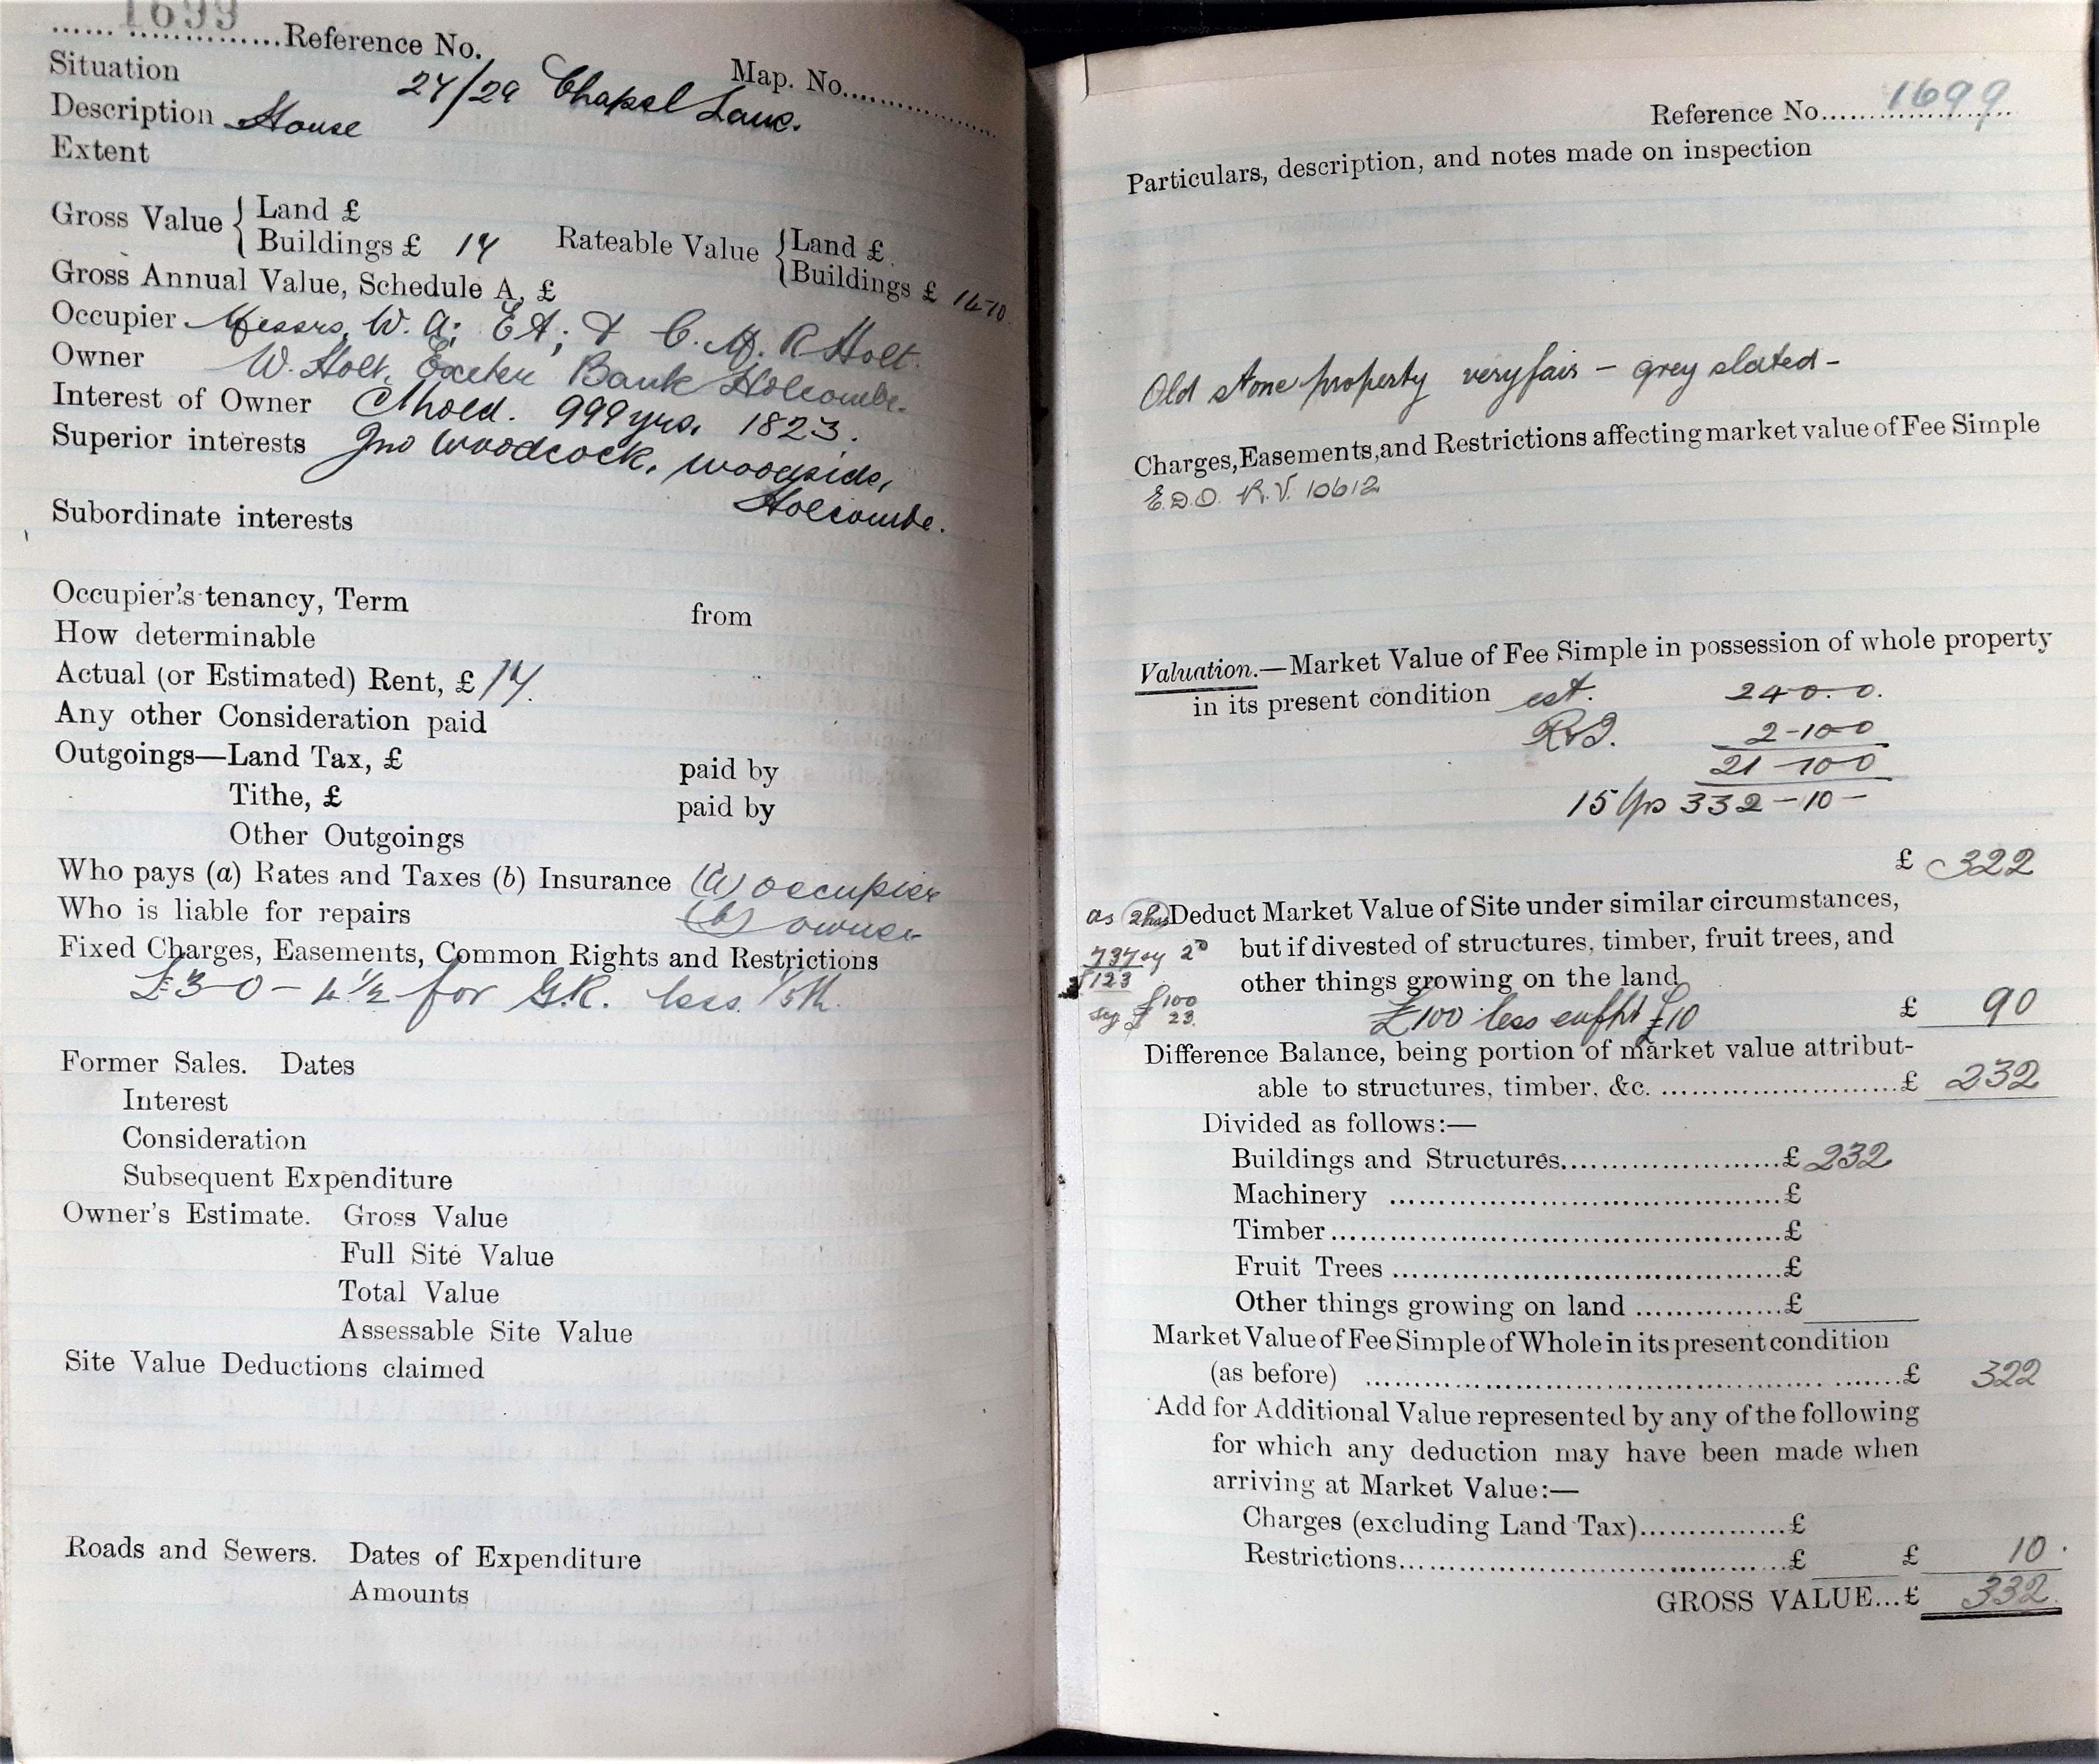 1699
...... ...............Reference No.
Map. No....................
Situation 27/29 Chapel Lane.
Description House
Extent
Gross Value { Land £
Buildings £ 14
Rateable Value { Land £
Buildings £
Gross Annual Value, Schedule A, £
Occupier Messrs, W. A; E A; & C. M. R Holt.
Owner W. Holt, Exeter Bank Holcombe.
Interest of Owner Chold. 999 yrs, 1823.
Superior interests Jno Woodcock, Woodside,
Holcombe.
Subordinate interests
Occupier's tenancy, Term from
How determinable
Actual (or Estimated) Rent, £ 14.
Any other Consideration paid
Outgoings—Land Tax, £ paid by
Tithe, £ paid by
Other Outgoings
Who pays (a) Rates and Taxes (b) Insurance (a) occupier
Who is liable for repairs (b) owner
Fixed Charges, Easements, Common Rights and Restrictions
£3-0-4½ for G.R. less 1/5th.
Former Sales. Dates
Interest
Consideration
Subsequent Expenditure
Owner's Estimate. Gross Value
Full Site Value
Total Value
Assessable Site Value
Site Value Deductions claimed
Roads and Sewers. Dates of Expenditure
Amounts
Reference No......1699
Particulars, description, and notes made on inspection
Old stone property very fair – grey slated –
Charges, Easements, and Restrictions affecting market value of Fee Simple
E.D.O. R.V. 10612
Valuation.—Market Value of Fee Simple in possession of whole property
in its present condition est. 240. 0.
2-10 0
21 10 0
15 Yps 332 - 10 -
£ 322
as Deduct Market Value of Site under similar circumstances,
737 sy 2D but if divested of structures, timber, fruit trees, and
123 other things growing on the land
say £ 100
23.
£100 less £10 £ 90
Difference Balance, being portion of market value attribut-
able to structures, timber, &c. ..............................£ 232
Divided as follows:—
Buildings and Structures........................£ 232
Machinery ...........................................£
Timber..................................................£
Fruit Trees ...........................................£
Other things growing on land .................£
Market Value of Fee Simple of Whole in its present condition
(as before) .............................................................£ 322
Add for Additional Value represented by any of the following
for which any deduction may have been made when
arriving at Market Value:—
Charges (excluding Land Tax)................£
Restrictions..........................................£ £ 10.
GROSS VALUE...£ 332.